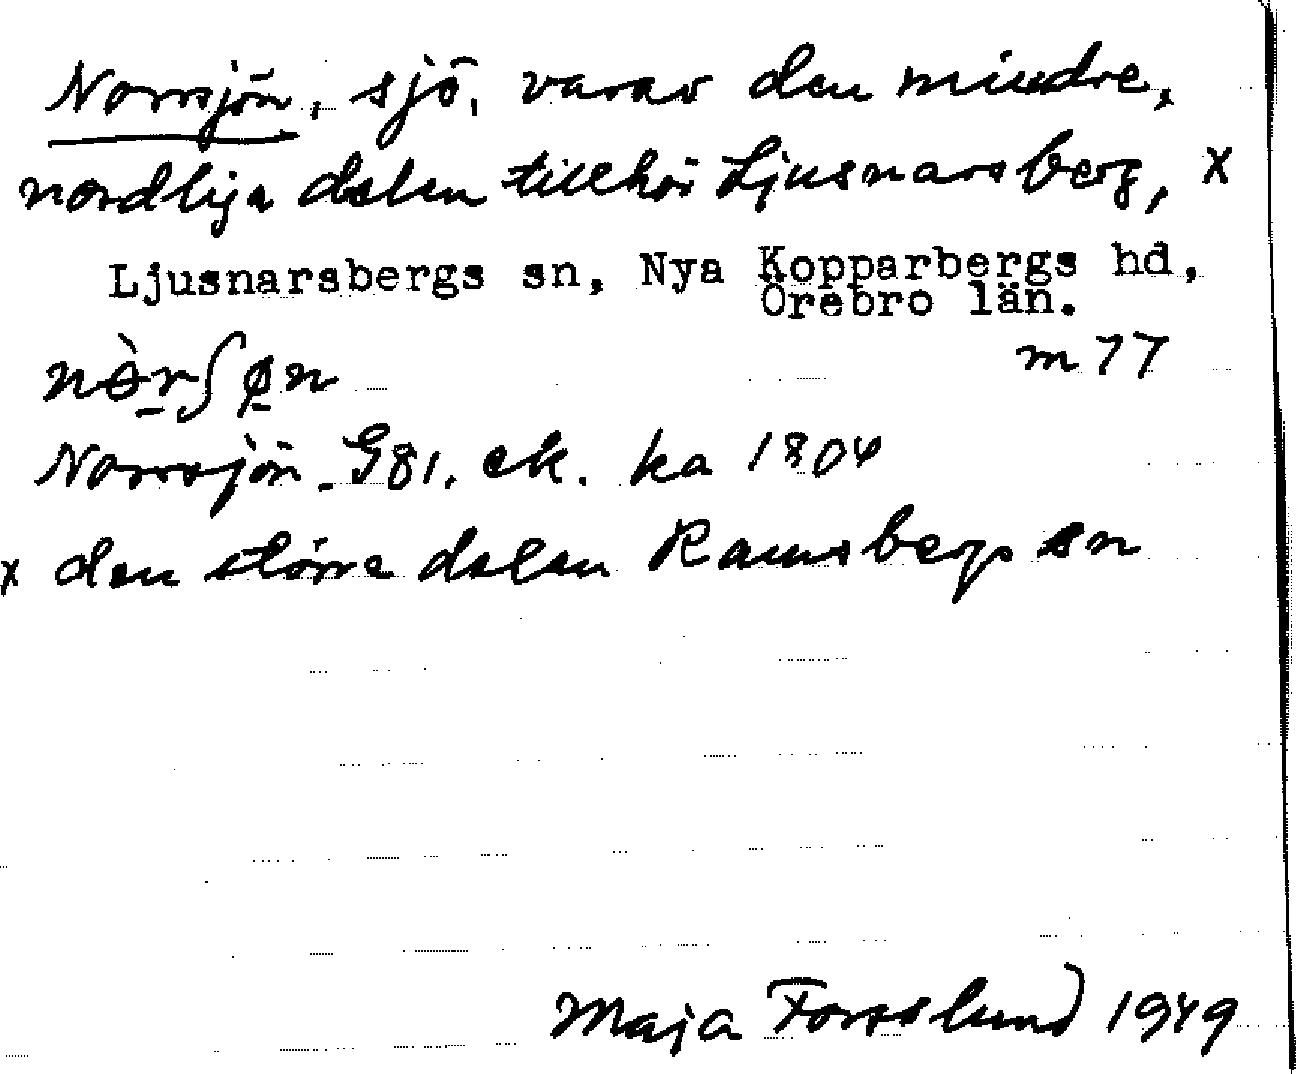 Norrsjön, sjö, varav den mindre,
nordliga delen tillhör Ljusnarsberg, x
Ljusnarsbergs sn, Nya Kopparbergs hd,
Örebro län.
nòrʃøn m 77
Norrsjön. G81. ek. ka 1804
x den större delen Ramsbergs sn
Maja Forsslund 1949